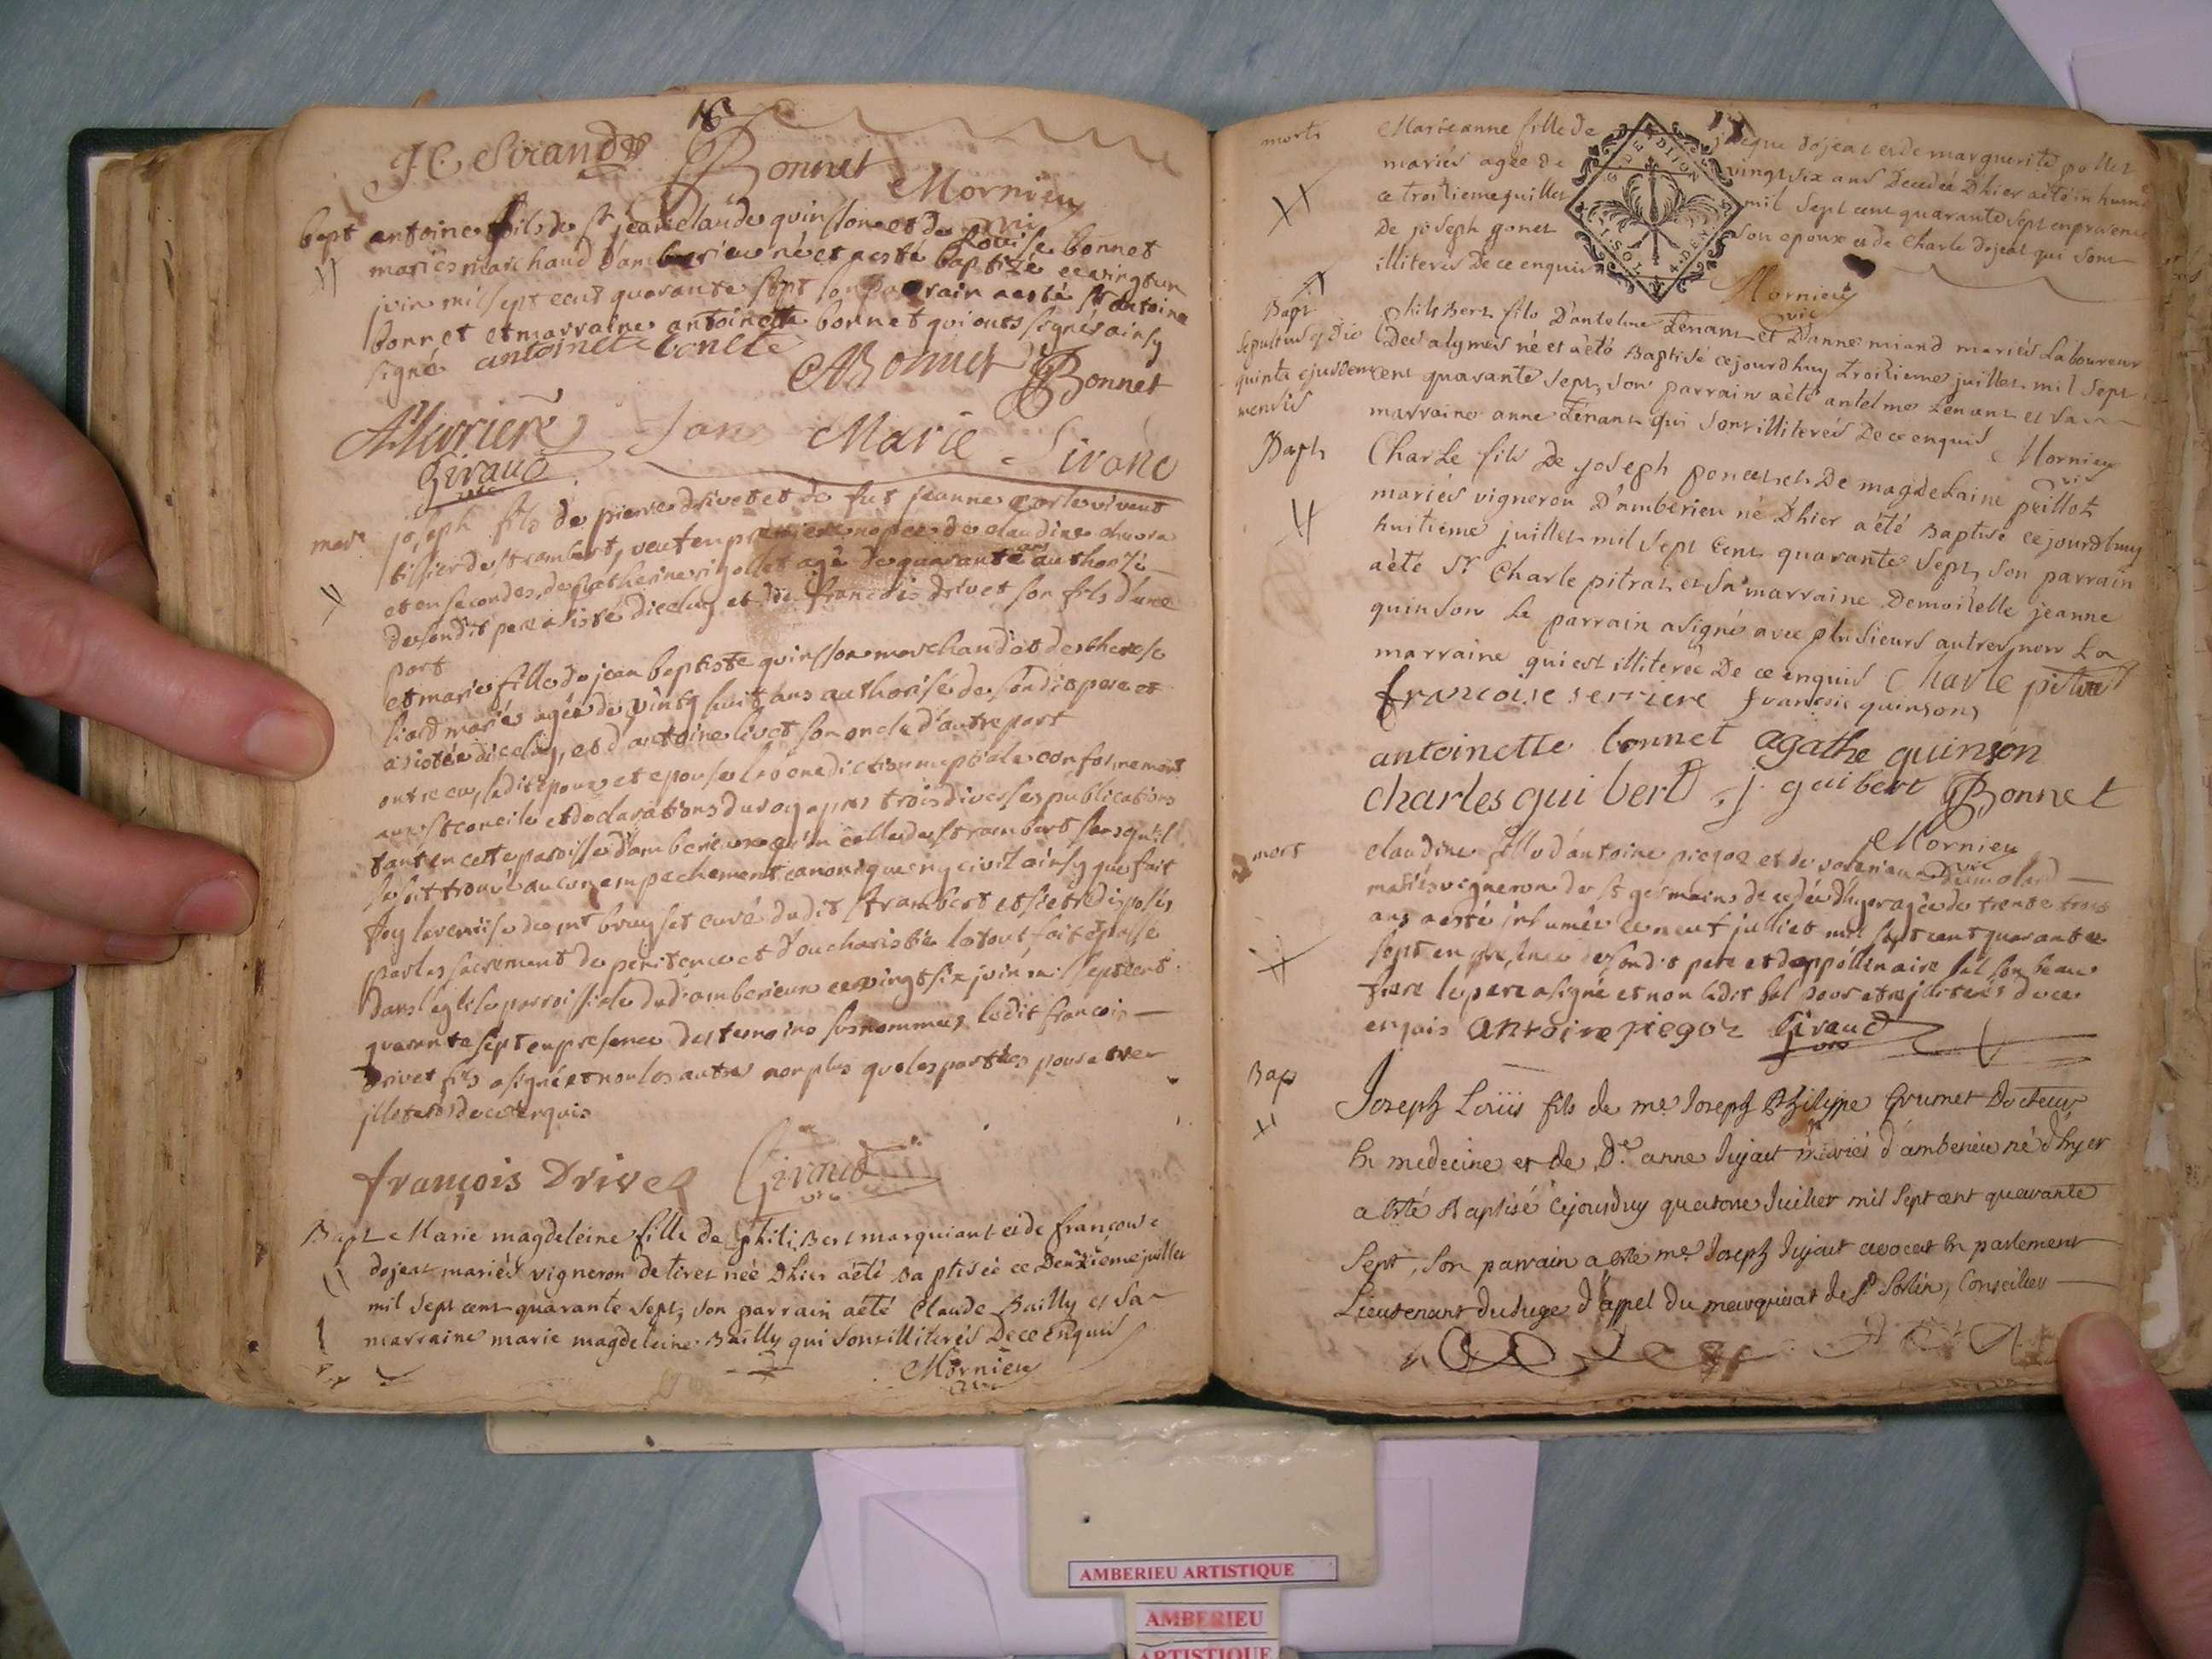 16
J. C. Sirand Bonnet Mornieu
vic
bapt antoine fils de sr jean claude quinson et de Louise bonnet
mariés marchand d'amberieu né et a esté baptizé ce vingt un
juin mil sept cent quarante sept son parrain a esté sr antoine
bonnet et marraine antoinette bonnet qui ont signés ainsy
signé antoinete bonete
ABonnet Bonnet
Jane Marie Sirand
Giraud
vic
joseph fils de pierre drivet et de fut jeanne vivant
tissier de st rambert, veuf en premiere nopces de claudine
et en secondes, de catherine rigollet agé de quarante ans authorisé
de sondit pere assisté diceluy et de francois drivet son fils d'une
part
et marie fille de jean baptiste quinsson marchand et de therese
liard mariés agée de vingt huit ans authorisée de sondit pere et
assistée diceluy, et d'antoine livet son oncle d'autre part
ont receu, ledit epoux et epouse la benediction nuptiale conformement
au st concile et declarations du roy apres trois diverses publications
tant en cette paroisse d'amberieu qu'en celle de st rambert sans qu'il
se soit trouvé aucun empechement canonique ny civil ainsy que fait
foy la remise de mr bruyset curé dudit st rambert et s'etre disposés
par les sacrement de penitence et d'eucharistie le tout fait et passé
dans l'eglise parroissiale dud. amberieu ce vingt six juin mil sept cent
quarante sept en presence des temoins susnommes, ledit francois
drivet fils a signé et non les autres non plus que les parties pour etre
illeteres de ce enquis
françois Drivet Giraud
vic
Bapt Marie magdeleine fille de philibert marquiant et de francoise
dojeat mariés vigneron de tiret née Dhier aété Baptisée ce Deuzieme juillet
mil Sept cent quarante Sept, Son parrain aété Claude Bailly et Sa
marraine marie magdeleine Bailly qui Sont illiterés De ce enquis
Mornieu
vic
17
morts Marieanne fille de jaque dojeat et de marguerite pollet
mariés agée de vingt six ans Decedée Dhier aété inhumée
ce troisieme juillet mil Sept cent quarante Sept en presence
De joseph gonet Son epoux et de Charle dojeat qui Sont
illiteres De ce enquis
GEN DE DIJON
4.DEN
Mornieu
vic
Bapt Philibert fils D'antelme Tenant et D'anne miand mariés Laboureur
Sepultus Die Des alymes né et aété Baptisé cejourdhuy troisieme juillet mil Sept
quinta ejusdem cent quarante Sept, Son parrain aété antelme Tenant et Sa
mensis marraine anne Tenant qui Sont illiterés De ce enquis Mornieu
vic
Bapt Charle fils De joseph poncet et De magdelaine peillot
mariés vigneron D'amberieu né Dhier aété Baptisé cejourdhuy
huitieme juillet mil Sept cent quarante Sept, Son parrain
aété Sr Charle pitrat et Sa marraine Demoiselle jeanne
quinson Le parrain a signé avec plusieurs autres, non La
marraine qui est illiterée De ce enquis Charle pitrat
francoise serriere francois quinsons
antoinette bonnet agathe quinson
charles guibert J. guibert Bonnet
Mornieu
vic
mort claudine fille d'antoine piegoz et de dumolard
mariés vigneron de st germains decedée d'hyer agée de trente trois
ans a esté inhumée ce neuf juillet mil sept cent quarante
sept en presence de sondit pere et d'appollinaire sal son beau
frere le pere a signé et non ledit sal pour etre illiterés de ce
enquis antoine piegoz Giraud
vic
Bap Joseph Loüis fils de me Joseph Philippe Grumet Docteur
En medecine et de De anne Jujat mariés d'amberieu né d'hyer
a esté Baptisé Cejourduy quatorze Juillet mil Sept cent quarante
Sept, Son parrain a esté me Joseph Jujat avocat En parlement
Lieutenant du Juge d'appel du marquisat de St Sorlin, Conseiller
AMBERIEU ARTISTIQUE
AMBERIEU
ARTISTIQUE